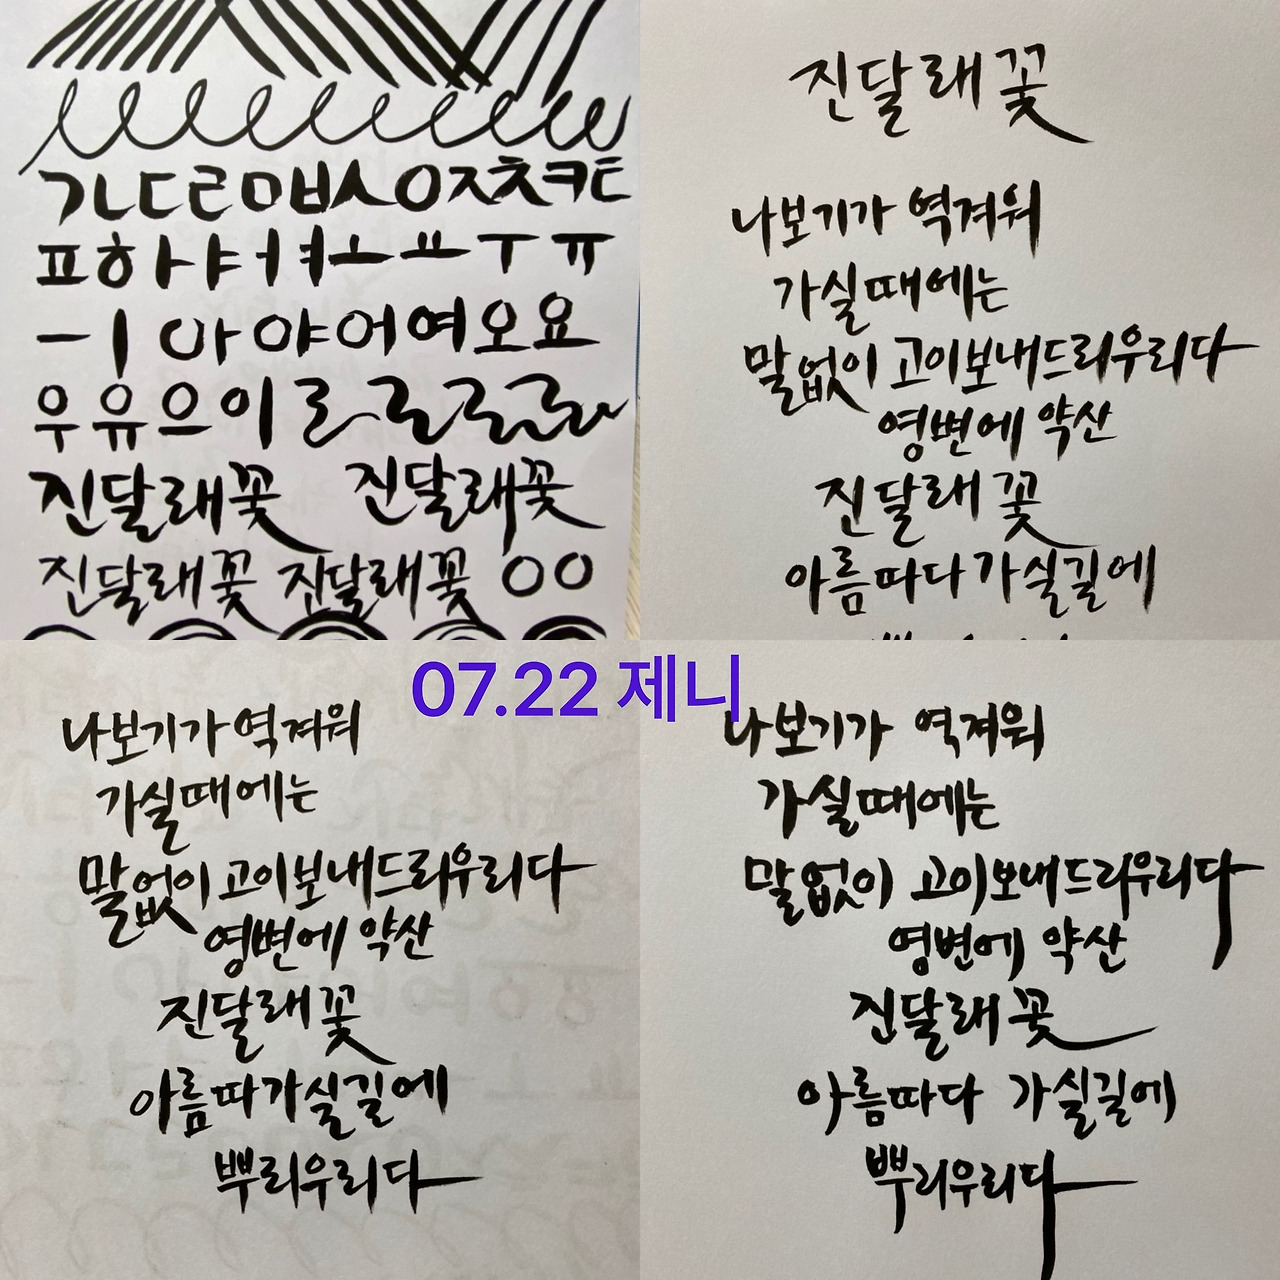 ㄱㄴㄷㄹㅁㅂㅅㅇㅈㅊㅋㅌ
ㅍㅎㅏㅑㅓㅕㅗㅛㅜㅠ
ㅡㅣ아야어여오요
우유으이ㄹㄹㄹㄹ
진달래꽃 진달래꽃
진달래꽃 진달래꽃 ㅇㅇ
진달래꽃
나보기가 역겨워
가실때에는
말없이 고이보내드리우리다
영변에 약산
진달래꽃
아름따다가실길에
07.22 제니
나보기가역겨워
가실때에는
말없이고이보내드리우리다
영변에 약산
진달래꽃
아름따가실길에
뿌리우리다
나보기가 역겨워
가실때에는
말없이 고이보내드리우리다
영변에 약산
진달래꽃
아름따다 가실길에
뿌리우리다